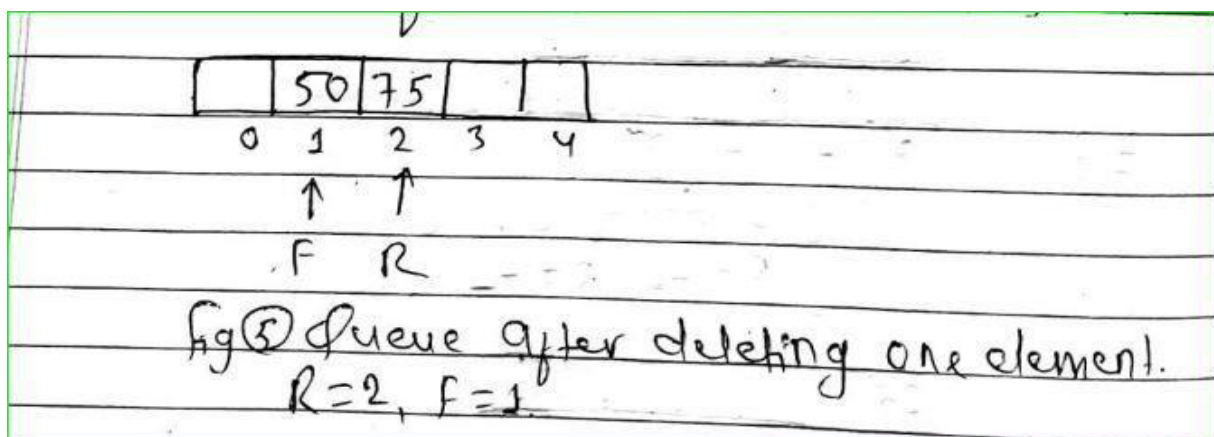 50 75
0 1 2 3 4
F R
fig ⑤ Queue after deleting one element.
R=2, F=1.